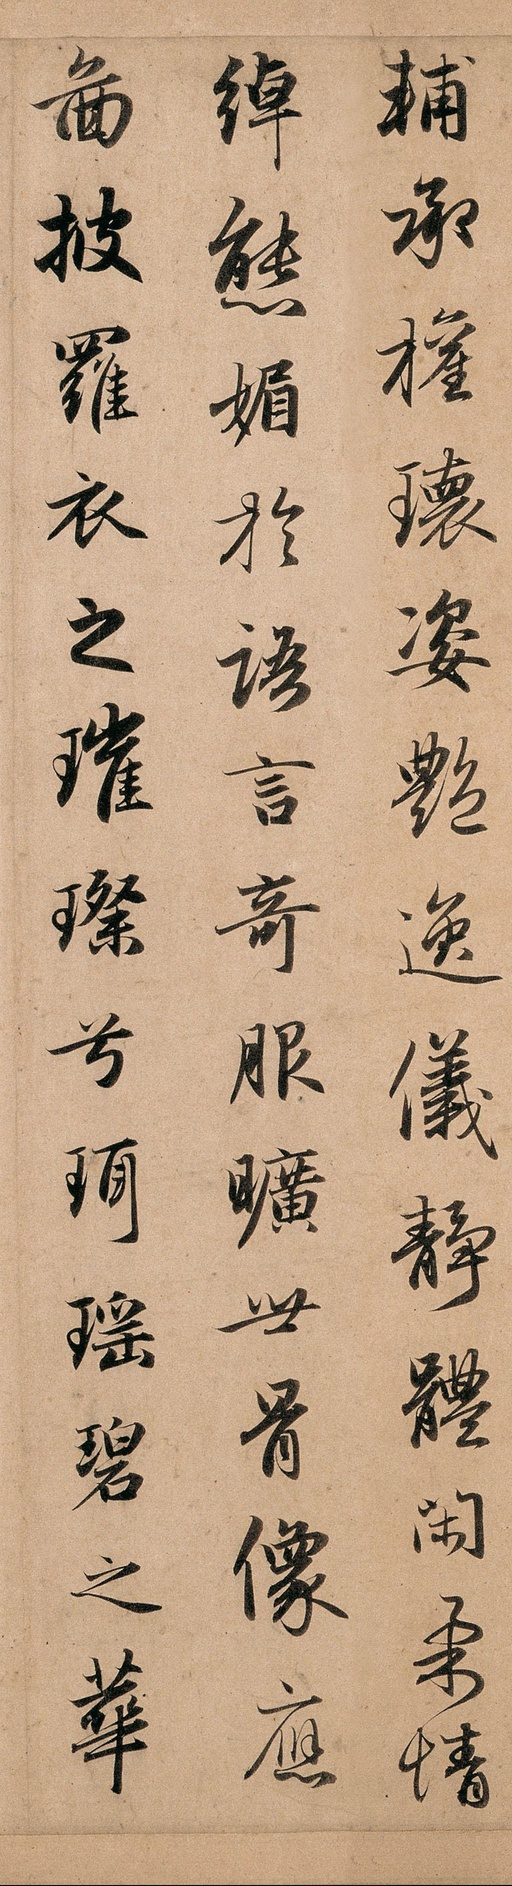 輔承權瓌姿艷逸儀靜體閑柔情
綽態媚於語言奇服曠世骨像應
啚披羅衣之璀璨兮珥瑶碧之華